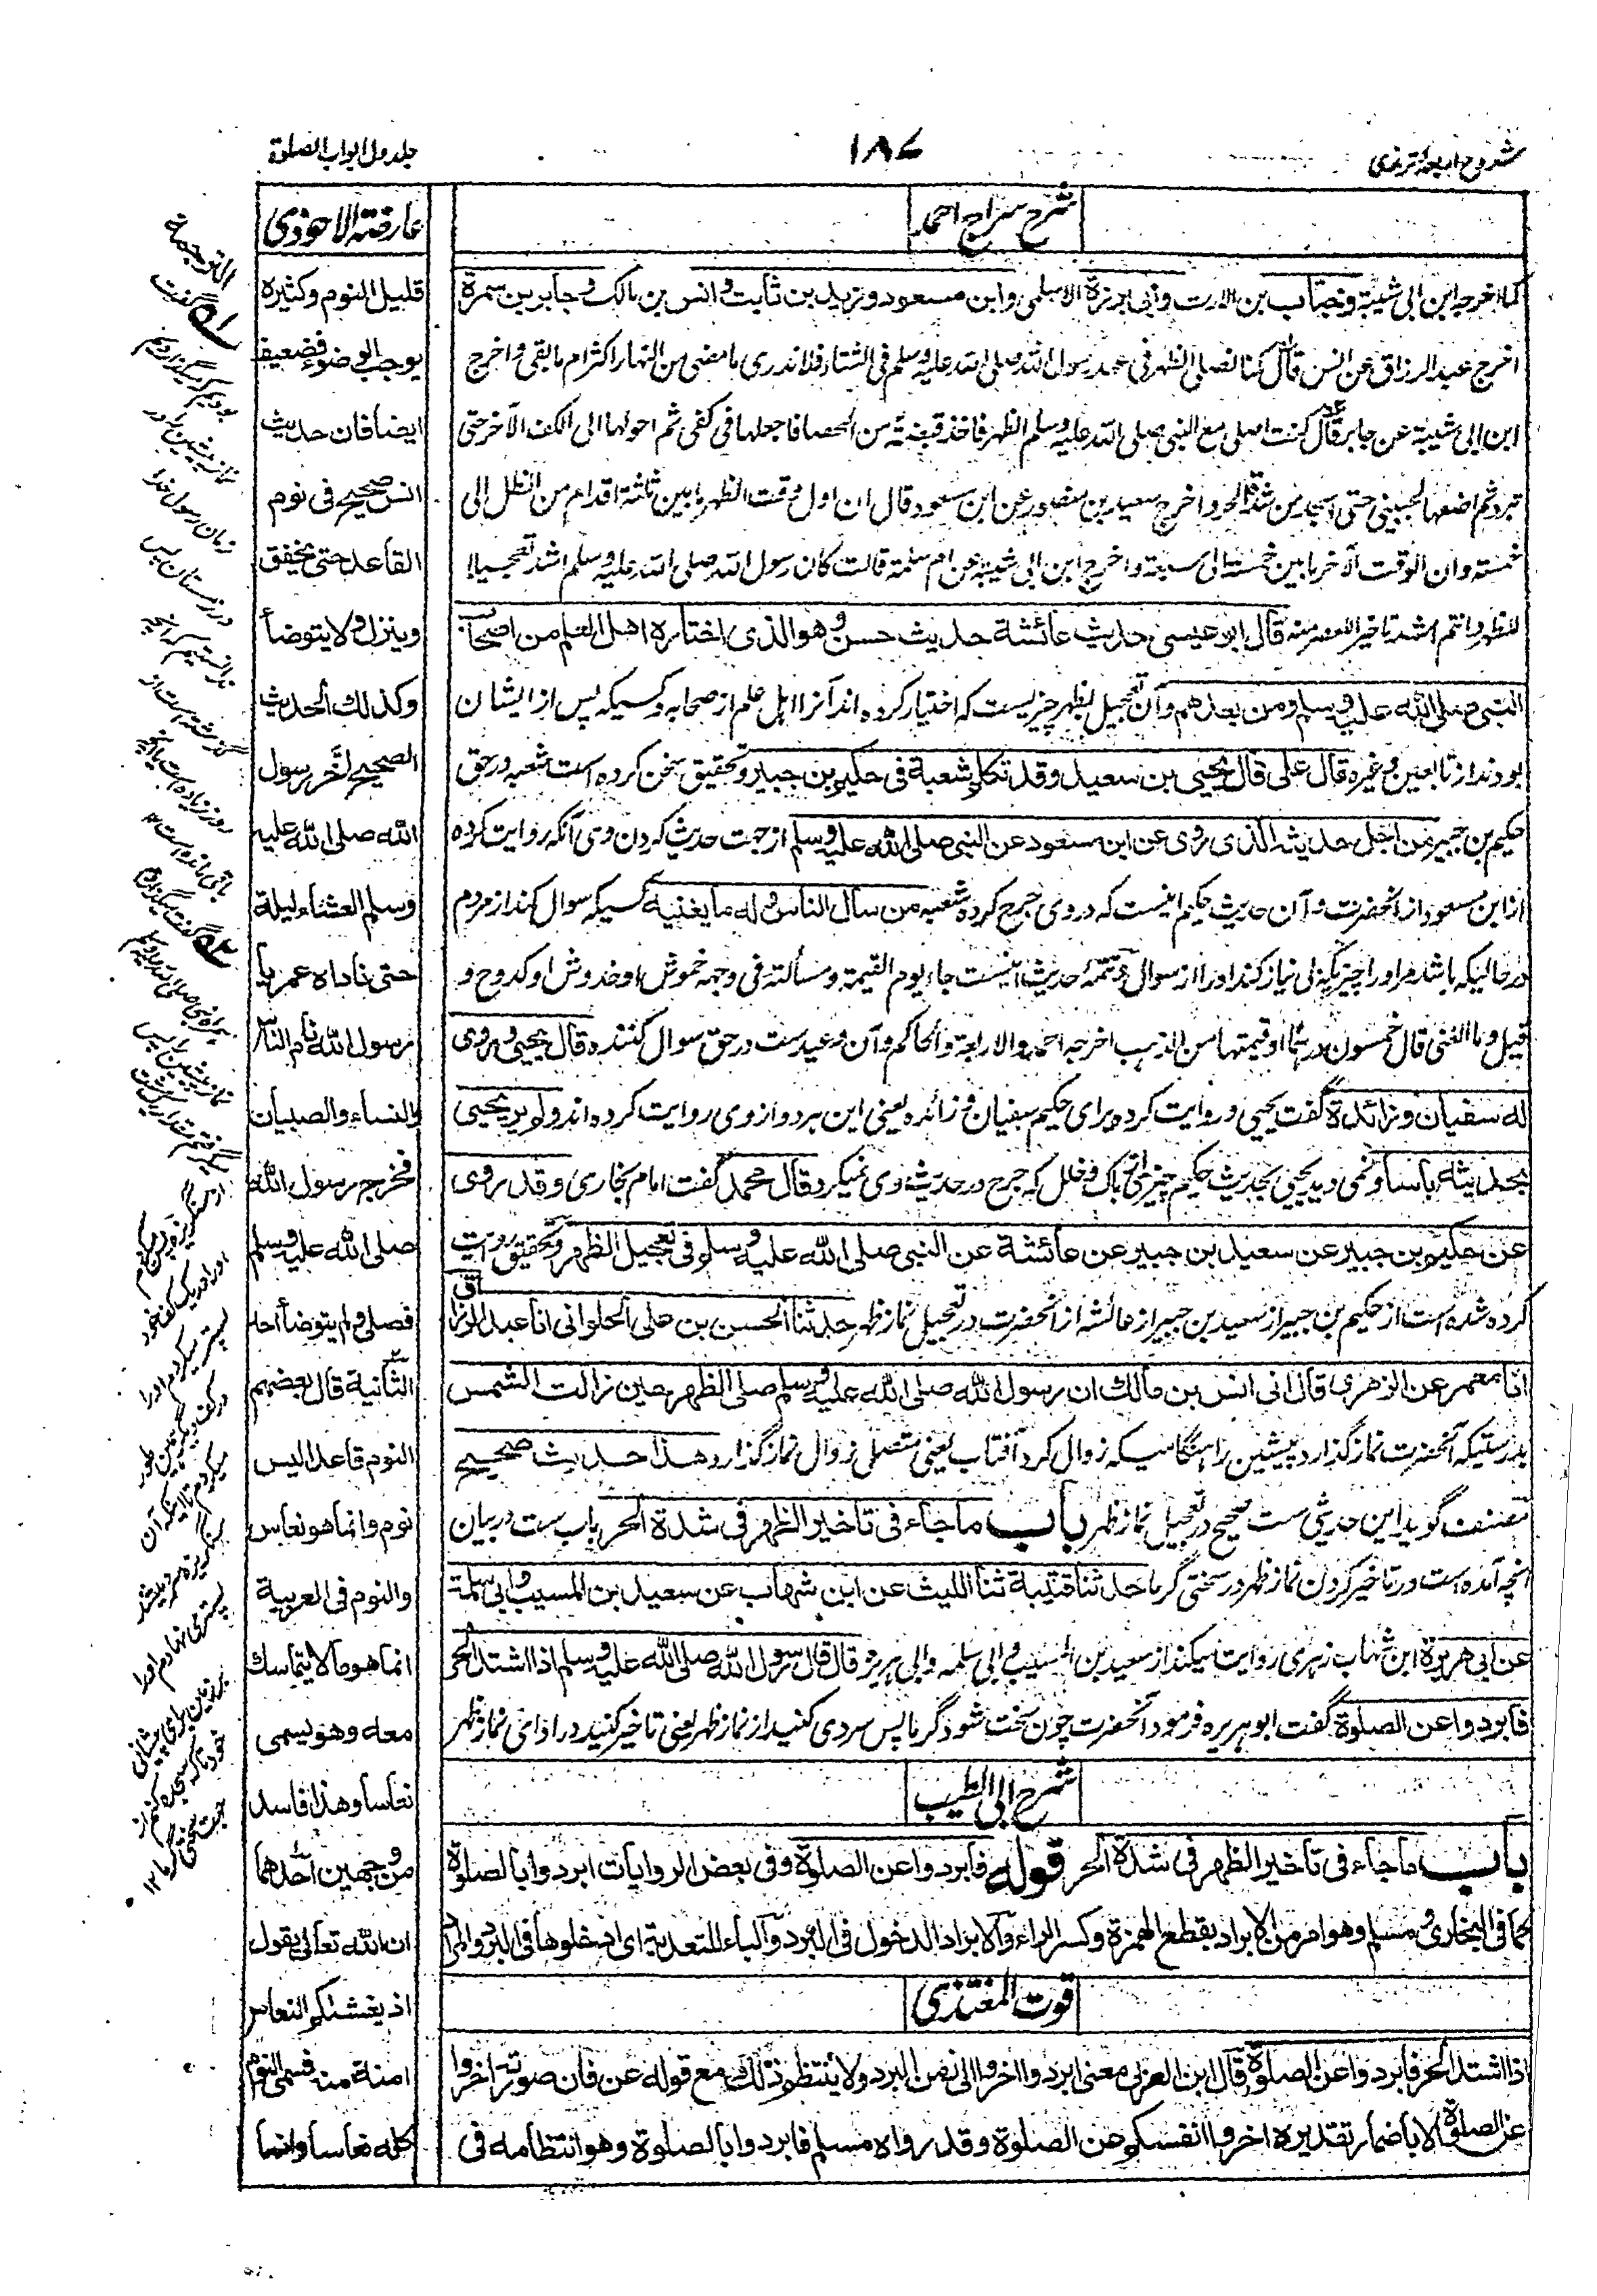 شروح اربعه ترمذی
۱۸۷
جلد اول ابواب الصلوة
شرح سراج احمد
کما اخرجه ابن ابی شیبة وخباب بن الارت وابی برزة الاسلمی وابن مسعود وزید بن ثابت وانس بن مالک وجابر بن سمرة
اخرج عبد الرزاق عن انس قال کنا نصلی الظهر فی عهد رسول الله صلی الله علیه وسلم فی الشتاء فلا ندری ما مضی من النهار اکثر ام ما بقی واخرج
ابن ابی شیبة عن جابر قال کنت اصلی مع النبی صلی الله علیه وسلم الظهر فآخذ قبضة من الحصا فاجعلها فی کفی ثم احولها الی الکف الآخر حتی
تبرد ثم اضعها لجبینی حتی اسجد من شدة الحر واخرج سعید بن منصور عن ابن مسعود قال ان اول وقت الظهر ما بین ثلثة اقدام من الظل الی
خمسة وان الوقت الآخر ما بین خمسة الی سبعة واخرج ابن ابی شیبة عن ام سلمة قالت کان رسول الله صلی الله علیه وسلم اشد تعجیلا
للظهر وانتم اشد تاخیرا للعصر منه قال ابو عیسی حدیث عائشة حدیث حسن وهو الذی اختاره اهل العلم من اصحاب
النبی صلی الله علیه وسلم ومن بعدهم وآن تعجیل بظهر چیزیست که اختیار کرده اند آنرا اهل علم از صحابه وکسیکه پس از ایشان
بودند از تابعین وغیره قال علی قال یحیی بن سعید وقد تکلم شعبة فی حکیم بن جبیر وتحقیق سخن کرده است شعبه در حق
حکیم بن جبیر من اجل حدیثه الذی روی عن ابن مسعود عن النبی صلی الله علیه وسلم از جهت حدیث کردن وی آنکه روایت کرده
از ابن مسعود از آنحضرت وآن حدیث حکیم اینست که در وی جرح کرده شعبه من سأل الناس وله ما یغنیه کسیکه سوال کند از مردم
در حالیکه باشد مر او را چیزیکه بی نیاز کند او را از سوال تتمهٔ حدیث اینست جاء یوم القیمة ومسألته فی وجهه خموش او خدوش او کدوح و
قیل وما الغنی قال خمسون درهما او قیمتها من الذهب اخرجه احمد والاربعة والحاکم وآن وعیدست در حق سوال کننده قال یحیی وروی
له سفیان وزائدة گفت یحیی وروایت کرده برای حکیم سفیان وزائده یعنی این هر دو از وی روایت کرده اند ولم یر یحیی
بحدیثه باسا ونمی دید یحیی بحدیث حکیم چیزی باک وخلل که جرح در حدیث وی نمیکرد قال محمد گفت امام بخاری وقد روی
عن حکیم بن جبیر عن سعید بن جبیر عن عائشة عن النبی صلی الله علیه وسلم فی تعجیل الظهر وتحقیق روایت
کرده شده است از حکیم بن جبیر از سعید بن جبیر از عائشه از آنحضرت در تعجیل نماز ظهر حدثنا الحسن بن علی الحلوانی انا عبد الرزاق
انا معمر عن الزهری قال انی انس بن مالک ان رسول الله صلی الله علیه وسلم صلی الظهر حین زالت الشمس
بدرستیکه آنحضرت نماز گذارد پیشین را هنگامیکه زوال کرد آفتاب یعنی متصل زوال نماز گذارد هذا حدیث صحیح
مصنف گوید این حدیثی ست صحیح در تعجیل نماز ظهر باب ما جاء فی تاخیر الظهر فی شدة الحر باب ست در بیان
آنچه آمده است در تاخیر کردن نماز ظهر در سختی گرما حدثنا قتیبة ثنا اللیث عن ابن شهاب عن سعید بن المسیب وابی سلمة
عن ابی هریرة ابن شهاب زهری روایت میکند از سعید بن المسیب وابی سلمه وابی هریره قال قال رسول الله صلی الله علیه وسلم اذا اشتد الحر
فابردوا عن الصلوة گفت ابو هریره فرمود آنحضرت چون سخت شود گرما پس سردی کنید از نماز ظهر یعنی تاخیر کنید در ادای نماز ظهر
شرح ابی الطیب
باب ما جاء فی تاخیر الظهر فی شدة الحر قوله فابردوا عن الصلوة وفی بعض الروایات ابردوا بالصلوة
کما فی البخاری ومسلم وهو امر من الابراد بقطع الهمزة وکسر الراء والابراد الدخول فی البرد والباء للتعدیة ای ادخلوها فی البرد
قوت المغتذی
اذا اشتد الحر فابردوا عن الصلوة قال ابن العربی معنی ابردوا اخروا الی زمن البرد ولا ینتظم ذلک مع قوله عن فان صورته اخروا
عن الصلوة الا باضمار تقدیره اخروا انفسکم عن الصلوة وقد رواه مسلم فابردوا بالصلوة وهو انتظامه فی
عارضة الاحوذی
قلیل النوم وکثیره
یوجب الوضوء فضعیف
ایضا فان حدیث
انس صحیح فی نوم
القاعد حتی یخفق
وینزل ولا یتوضأ
وکذلک الحدیث
الصحیح اخر رسول
الله صلی الله علیه
وسلم العشاء لیلة
حتی ناداه عمر یا
رسول الله نام الناس
والنساء والصبیان
فخرج رسول الله
صلی الله علیه وسلم
فصلی ولم یتوضأ احد
الثانیة قال بعضهم
النوم قاعدا لیس
نوم وانما هو نعاس
والنوم فی العربیة
انما هو ما لا یتماسک
معه وهو یسمی
نعاسا وهذا فاسد
من وجهین احدهما
ان الله تعالی یقول
اذ یغشیکم النعاس
امنة منه فسمی النوم
کله نعاسا وانما
الترجمة
گفت
بودیم که میگذاردیم
نماز پیشین را در
زمان رسول خدا
در زمستان پس
ندانستیم که آنچه
گذشته است از
روز زیاده است یا آنچه
باقی مانده است ۱۲
گفت میگذاردم
همراه نبی صلی الله علیه وسلم
نماز پیشین را پس
میگرفتم مقدار یک مشت
از سنگریزه پس میکردم
او را در یک کف خود
پستر میکردم او را
در کف دیگر همین طور
میکردم تا اینکه آن
سنگریزه سرد میشد
پستر می نهادم او را
بر زمین برای پیشانی
خود تا که سجده کنم از
جهت سختی گرما ۱۲